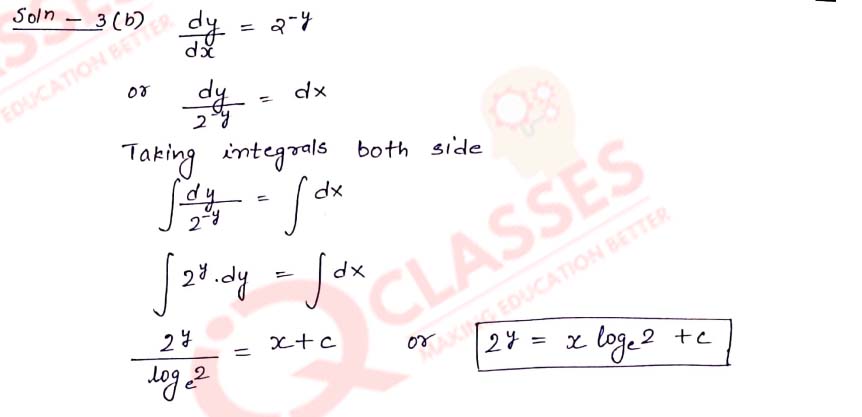 Soln - 3(b) dy/dx = 2^-y
or dy/2^-y = dx
Taking integrals both side
∫ dy/2^-y = ∫ dx
∫ 2^y . dy = ∫ dx
2^y / log_e 2 = x + c or 2^y = x log_e 2 + c
IQ CLASSES
MAKING EDUCATION BETTER
ASSES
EDUCATION BETTER